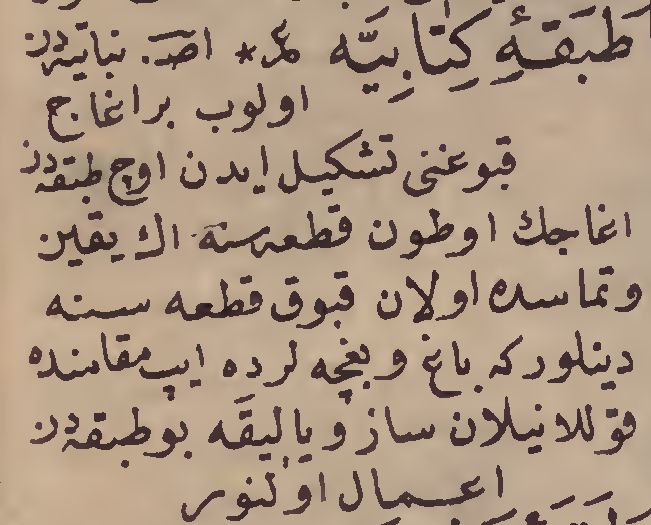 طَبَقَهٔ كِتَابِيَّه عر* اصـ. نباتيه‌دن
اولوب بر اغاج
قبوغنى تشكيل ايدن اوچ طبقه‌دن
اغاجك اوطون قطعه‌سنه اك يقين
وتماسده اولان قبوق قطعه سنه
دينلور كه باغ وبغچه لرده ايپ مقامنده
قوللانيلان ساز ويا ليقَه بو طبقه‌دن
اعمال اولنور